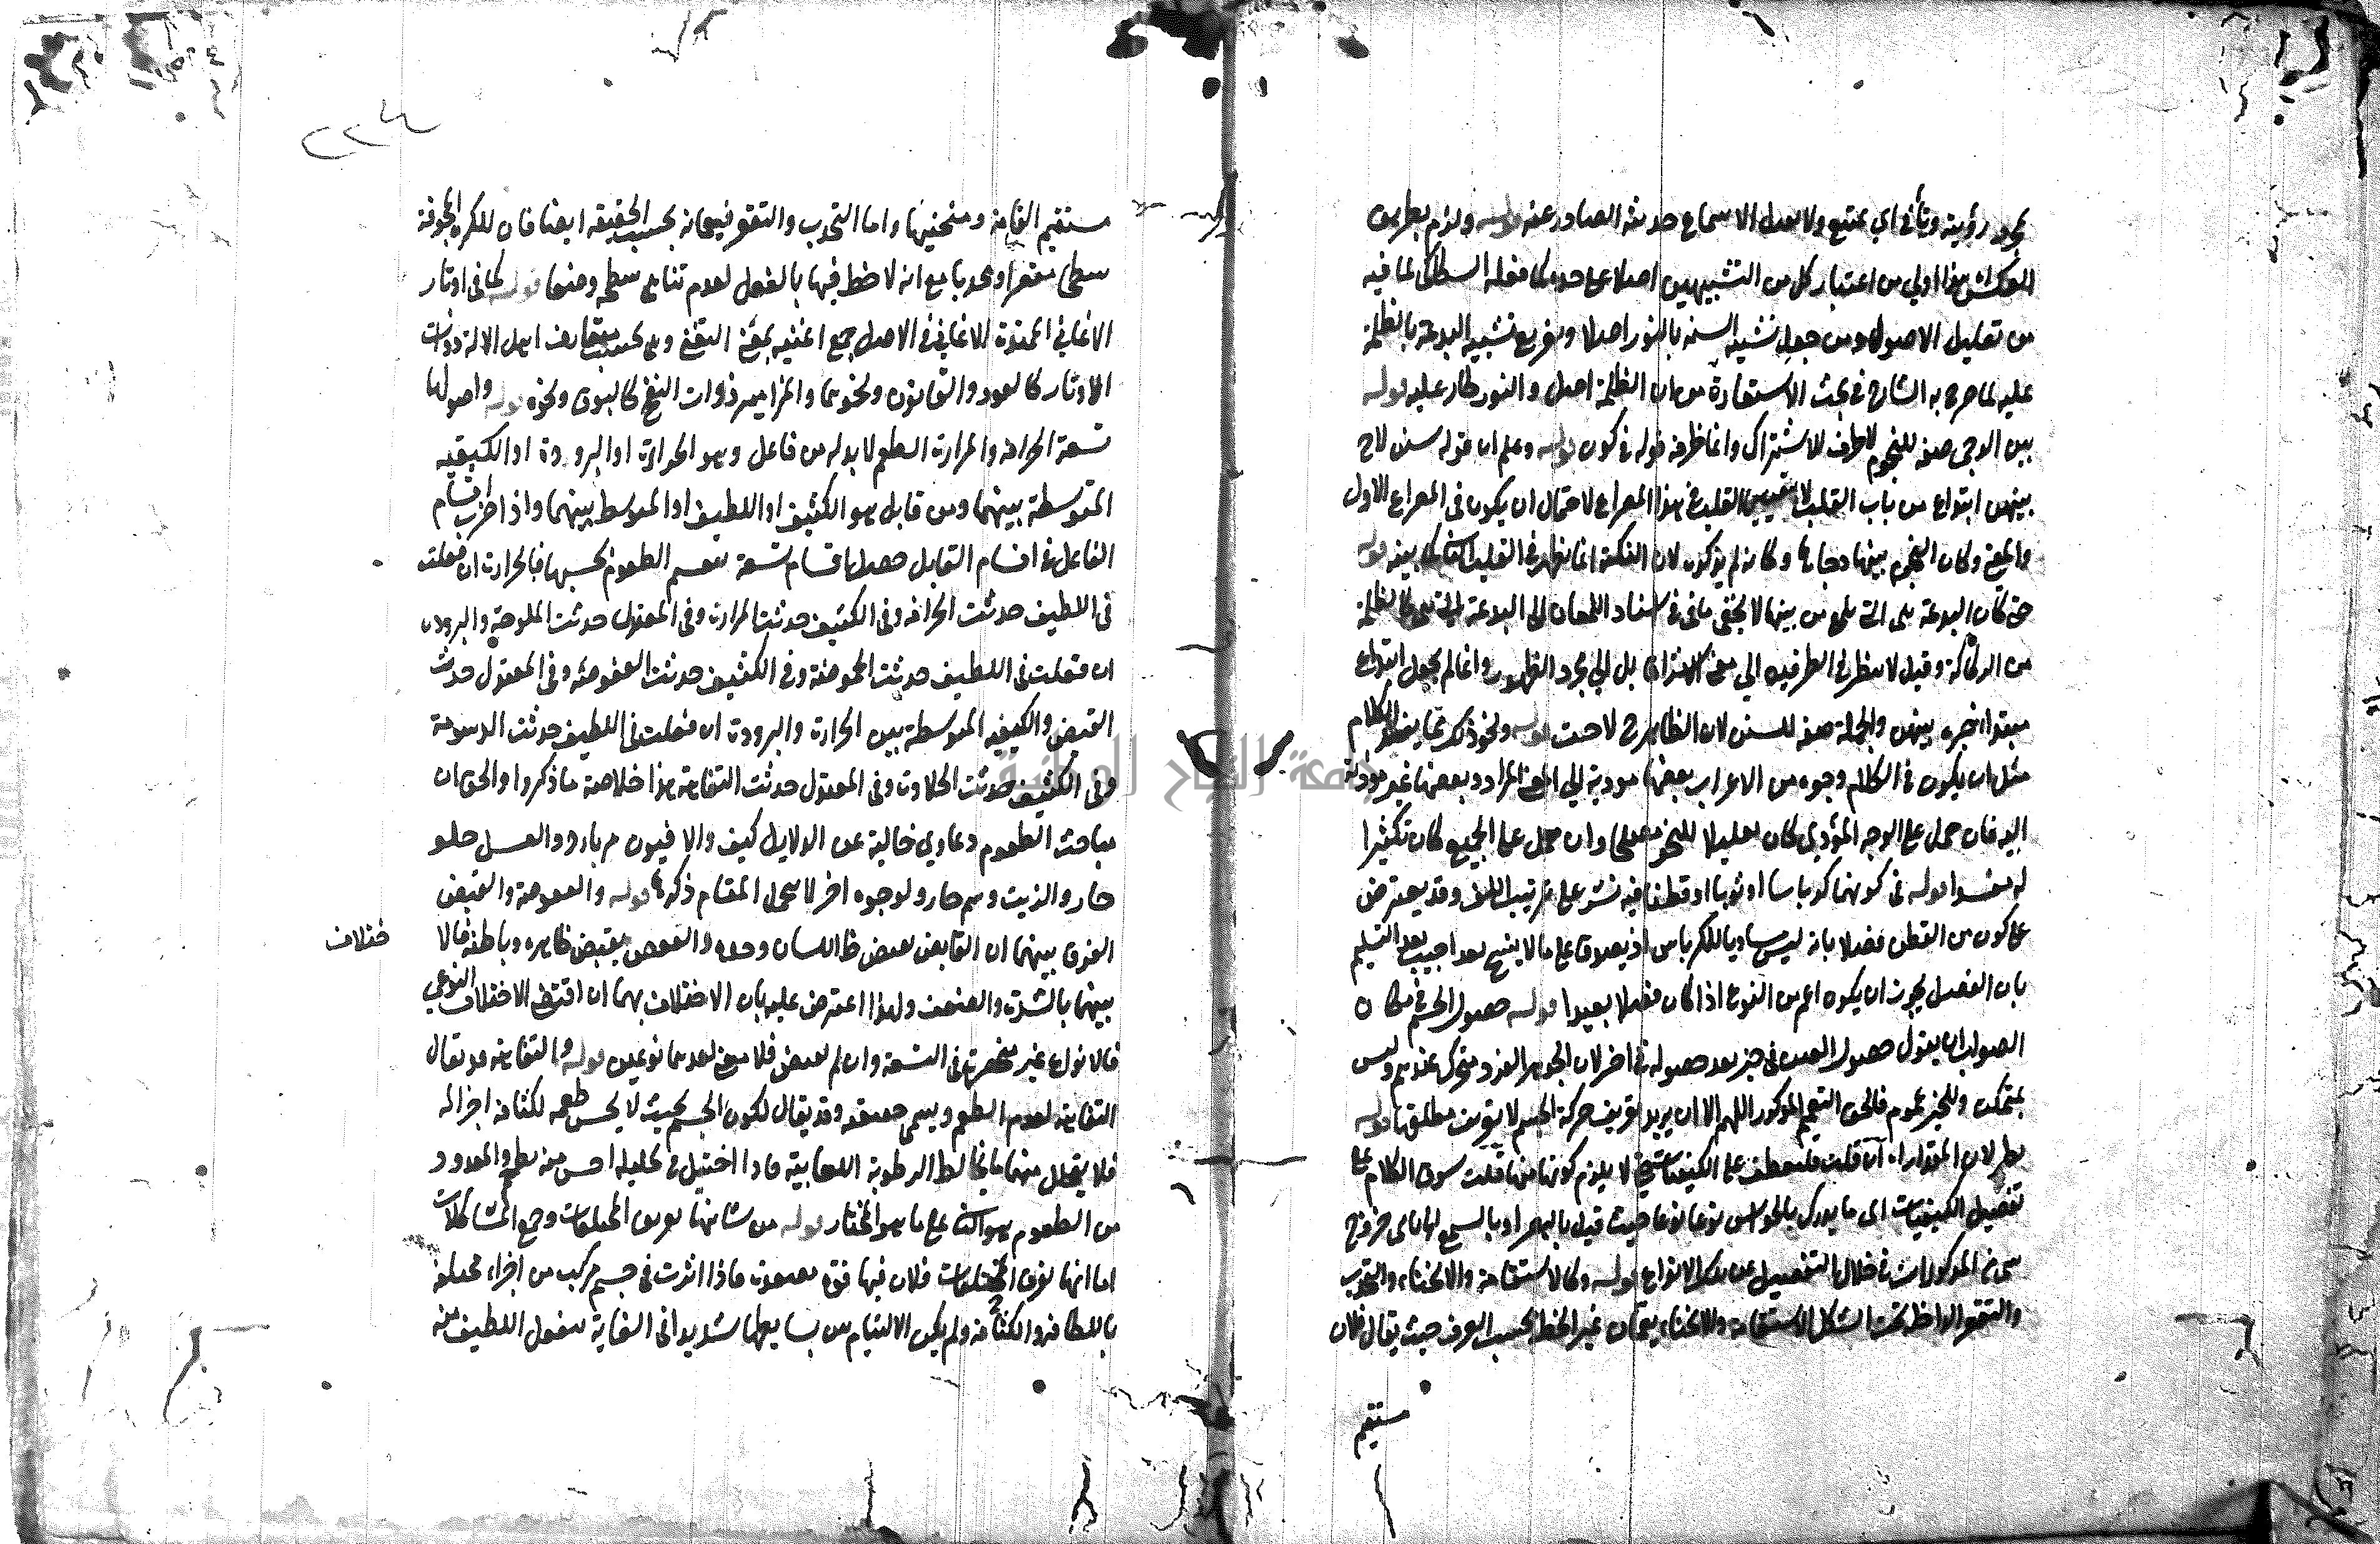 بمجرد رؤيته وتأنى اي تمتع ولا تعدل الا سماع حديثه الصادر عنه قوله ولزم بطريق
العكس هذا اولي من اعتبار كل من التشبيهين اصلا على حده كما فعله السكاكي لما فيه
من تقليل الاصول ومن جعل تشبيه السنه بالنور اصلا وتفريع تشبيه البدعة بالظلمة
عليه لما صرح به الشارح في بحث الاستعارة من ان الظلمة اصل والنور طار عليه قوله
بين الدجى صفه للنجوم لا ظرف للاشتراك وانما ظرفه قوله في كون قوله وعلم ان قوله سنن لاح
بينهن ابتداع من باب القلب القلب في هذا المصراع لاحتمال ان يكون في المصراع الاول
والمعنى وكان النجوم بينها دجاها وكانه لم يذكره لان النكتة انما تظهر في القلب بينه قوله
حتى كان البدعة هي التي تلمع من بينها لا يخفى ما في اسناد اللمعان الى البدعة التي هي كالظلمة
من الركاكة وقيل لا ينظر في الطرفين الي معنى بل الي مجرد الظهور وانما لم يجعل ابتداع
مبتدا خبره بينهن والجملة صفه للسنن لان الظاهر ح لاحت قوله ونحو ذلك مما يفسد الكلام
مثل ان يكون في الكلام وجوه من الاعراب بعضها مودية الي المعنى المراد وبعضها غير مودية
اليه فان حمل على الوجه المؤدي كان تقليلا للنحو مصلحا وان حمل على الجميع كان تكثيرا
له مفسدا قوله في كونهما كرباسا او ثوبا او قطنا فيه نشر على ترتيب اللف وقد يعترض
على كون من القطن فصلا بانه ليس مساويا للكرباس اذ يصدق على ما لا ينسج بعد اجيب بعد التسليم
بان الفصل يجوز ان يكون اعم من النوع اذا كان فصلا بعيدا قوله حصول الجسم في مكان
الصواب ان يقول حصول الجسم في حيز بعد حصوله في اخر لان الجوهر الفرد متحرك عندهم وليس
بمتمكن وللحيز عموم فالحق التعميم المذكور اللهم الا ان يريد تعريف حركة الجسم لا تعريف مطلقها قوله
نظر لان المقدار ان قلت منعطف على الكيفيات لا يلزم كونها منها قلت سوق الكلام على
تفصيل الكيفيات اي ما يدرك بالحواس نوعا نوعا حيث قيل بالبصر او بالسمع يابى خروج
شي من المذكورات في خلال التفصيل عن تلك الانواع قوله وكالاستقامة والانحناء والتحدب
والتقعر الداخلة تحت الشكل الاستقامة والانحناء يعمان غير الخط بحسب العرف حيث يقال فلان
مستقيم
٢٢٤
مستقيم القامة ومنحنيها واما التحدب والتقعر فيعمانه بحسب الحقيقه ايضا فان للكره المجوفة
سطحا مقعرا ومحدبا مع انه لا خط فيها بالفعل لعدم تناهي سطحه وضعا قوله كما في اوتار
الاغاني الممتدة الاغاني في الاصل جمع اغنيه بمعنى التغني وهي بحسب متعارف اهل الالة ذوات
الاوتار كالعود والقانون ونحوهما والمزامير ذوات النفخ كالبوق ونحوه قوله واصولها
تسعة الحرافه والمرارت الطعم لا بد له من فاعل وهو الحرارت او البرودة او الكيفيه
المتوسطة بينهما ومن قابل هو الكثيف او اللطيف او المتوسط بينهما واذا ضرب اقسام
الفاعل في اقسام القابل حصل اقسام تسعة تنقسم الطعوم بحسبها فالحرارت ان فعلت
في اللطيف حدثت الحرافه وفي الكثيف حدثت المرارت وفي المعتدل حدثت الملوحة والبرودت
ان فعلت في اللطيف حدثت الحموضة وفي الكثيف حدثت العفوصة وفي المعتدل حدث
القبض والكيفيه المتوسطة بين الحرارت والبرودت ان فعلت في اللطيف حدثت الدسومة
وفي الكثيف حدثت الحلاوت وفي المعتدل حدثت التفاهة هذا خلاصة ما ذكروا والحق ان
مباحث الطعوم دعاوي خالية عن الدلايل كيف والافيون مر بارد والعسل حلو
حار والزيت دسم حار ولوجوه اخر لا يتحمل المقام ذكرها قوله والعفوصة والقبض
الفرق بينهما ان القابض يقبض ظ اللسان وحده والعفص يقبض ظاهره وباطنه فالا
ختلاف
بينهما بالشدت والضعف ولهذا اعترض عليه بان الاختلاف بهما ان اقتضى الاختلاف النوعي
فالانواع غير منحصرة في التسعة وان لم يقتض فلا معنى لعدهما نوعين قوله والتفاهة قد يقال
التفاهة لعدم الطعم ويسمى حقيقة وقد يقال لكون الجسم بحيث لا يحس طعمه لكثافة اجزائه
فلا يتحلل منها ما يخالط الرطوبة اللعابية فاذا احتيل في تحليله احس منه بطعم والمعدود
من الطعوم هو الثاني على ما هو المختار قوله من شانها تفريق المختلفات وجمع المتشاكلات
اما انها تفرق المختلفات فلان فيها قوة مصعدت فاذا اثرت في جسم مركب من اجزاء مختلفه
باللطافه والكثافة ولم يكن الالتيام بين بسايطها شديدا في الغاية ينفعل اللطيف منه